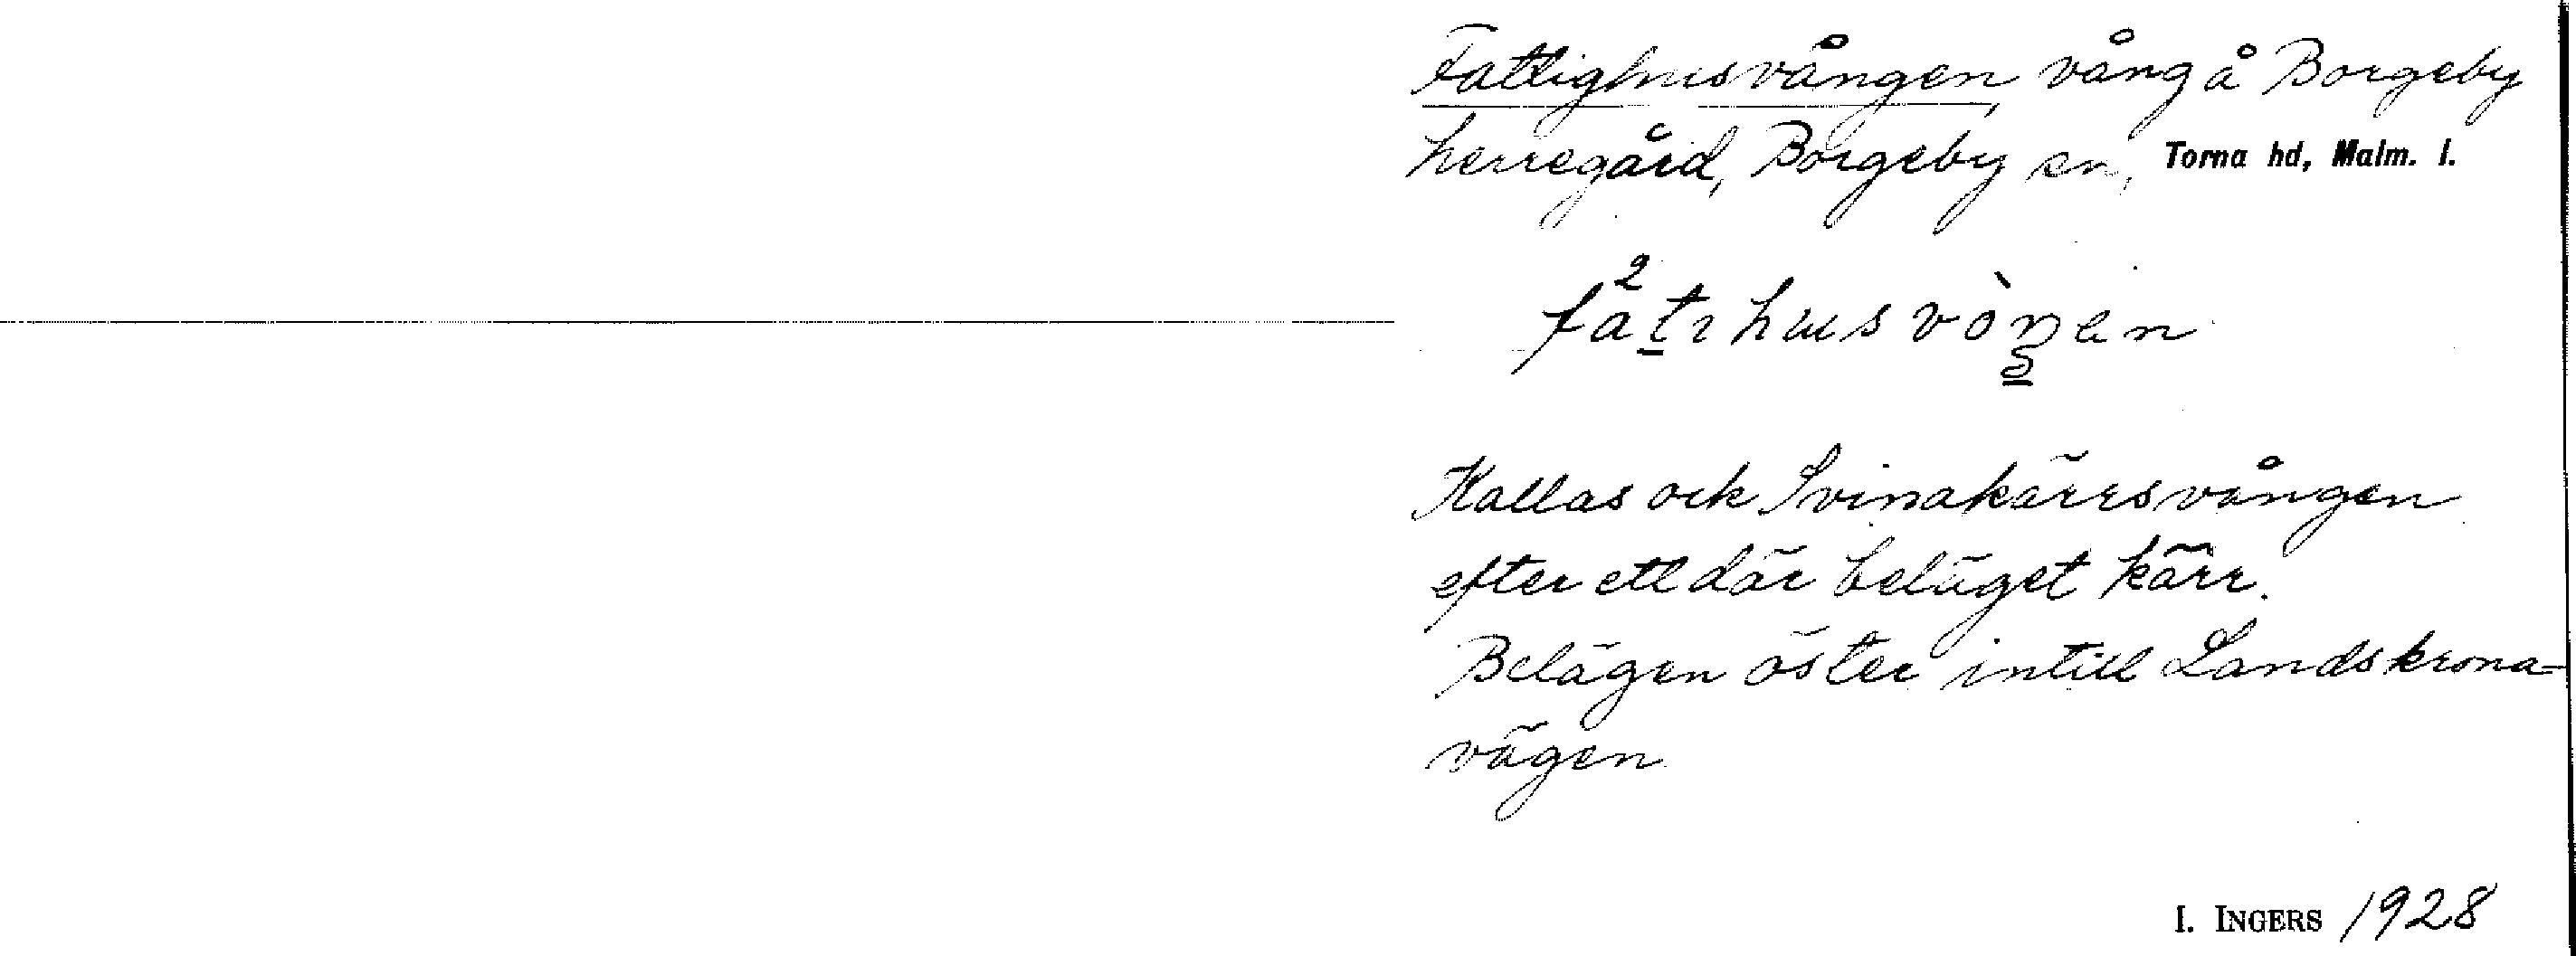 Fattighusvången, vång å Borgeby
herregård, Borgeby sn, Torna hd, Malm. l.
Kallas ock Svinakärrsvången
efter ett där beläget kärr.
Belägen öster intill Landskrona-
vägen
I. INGERS 1928